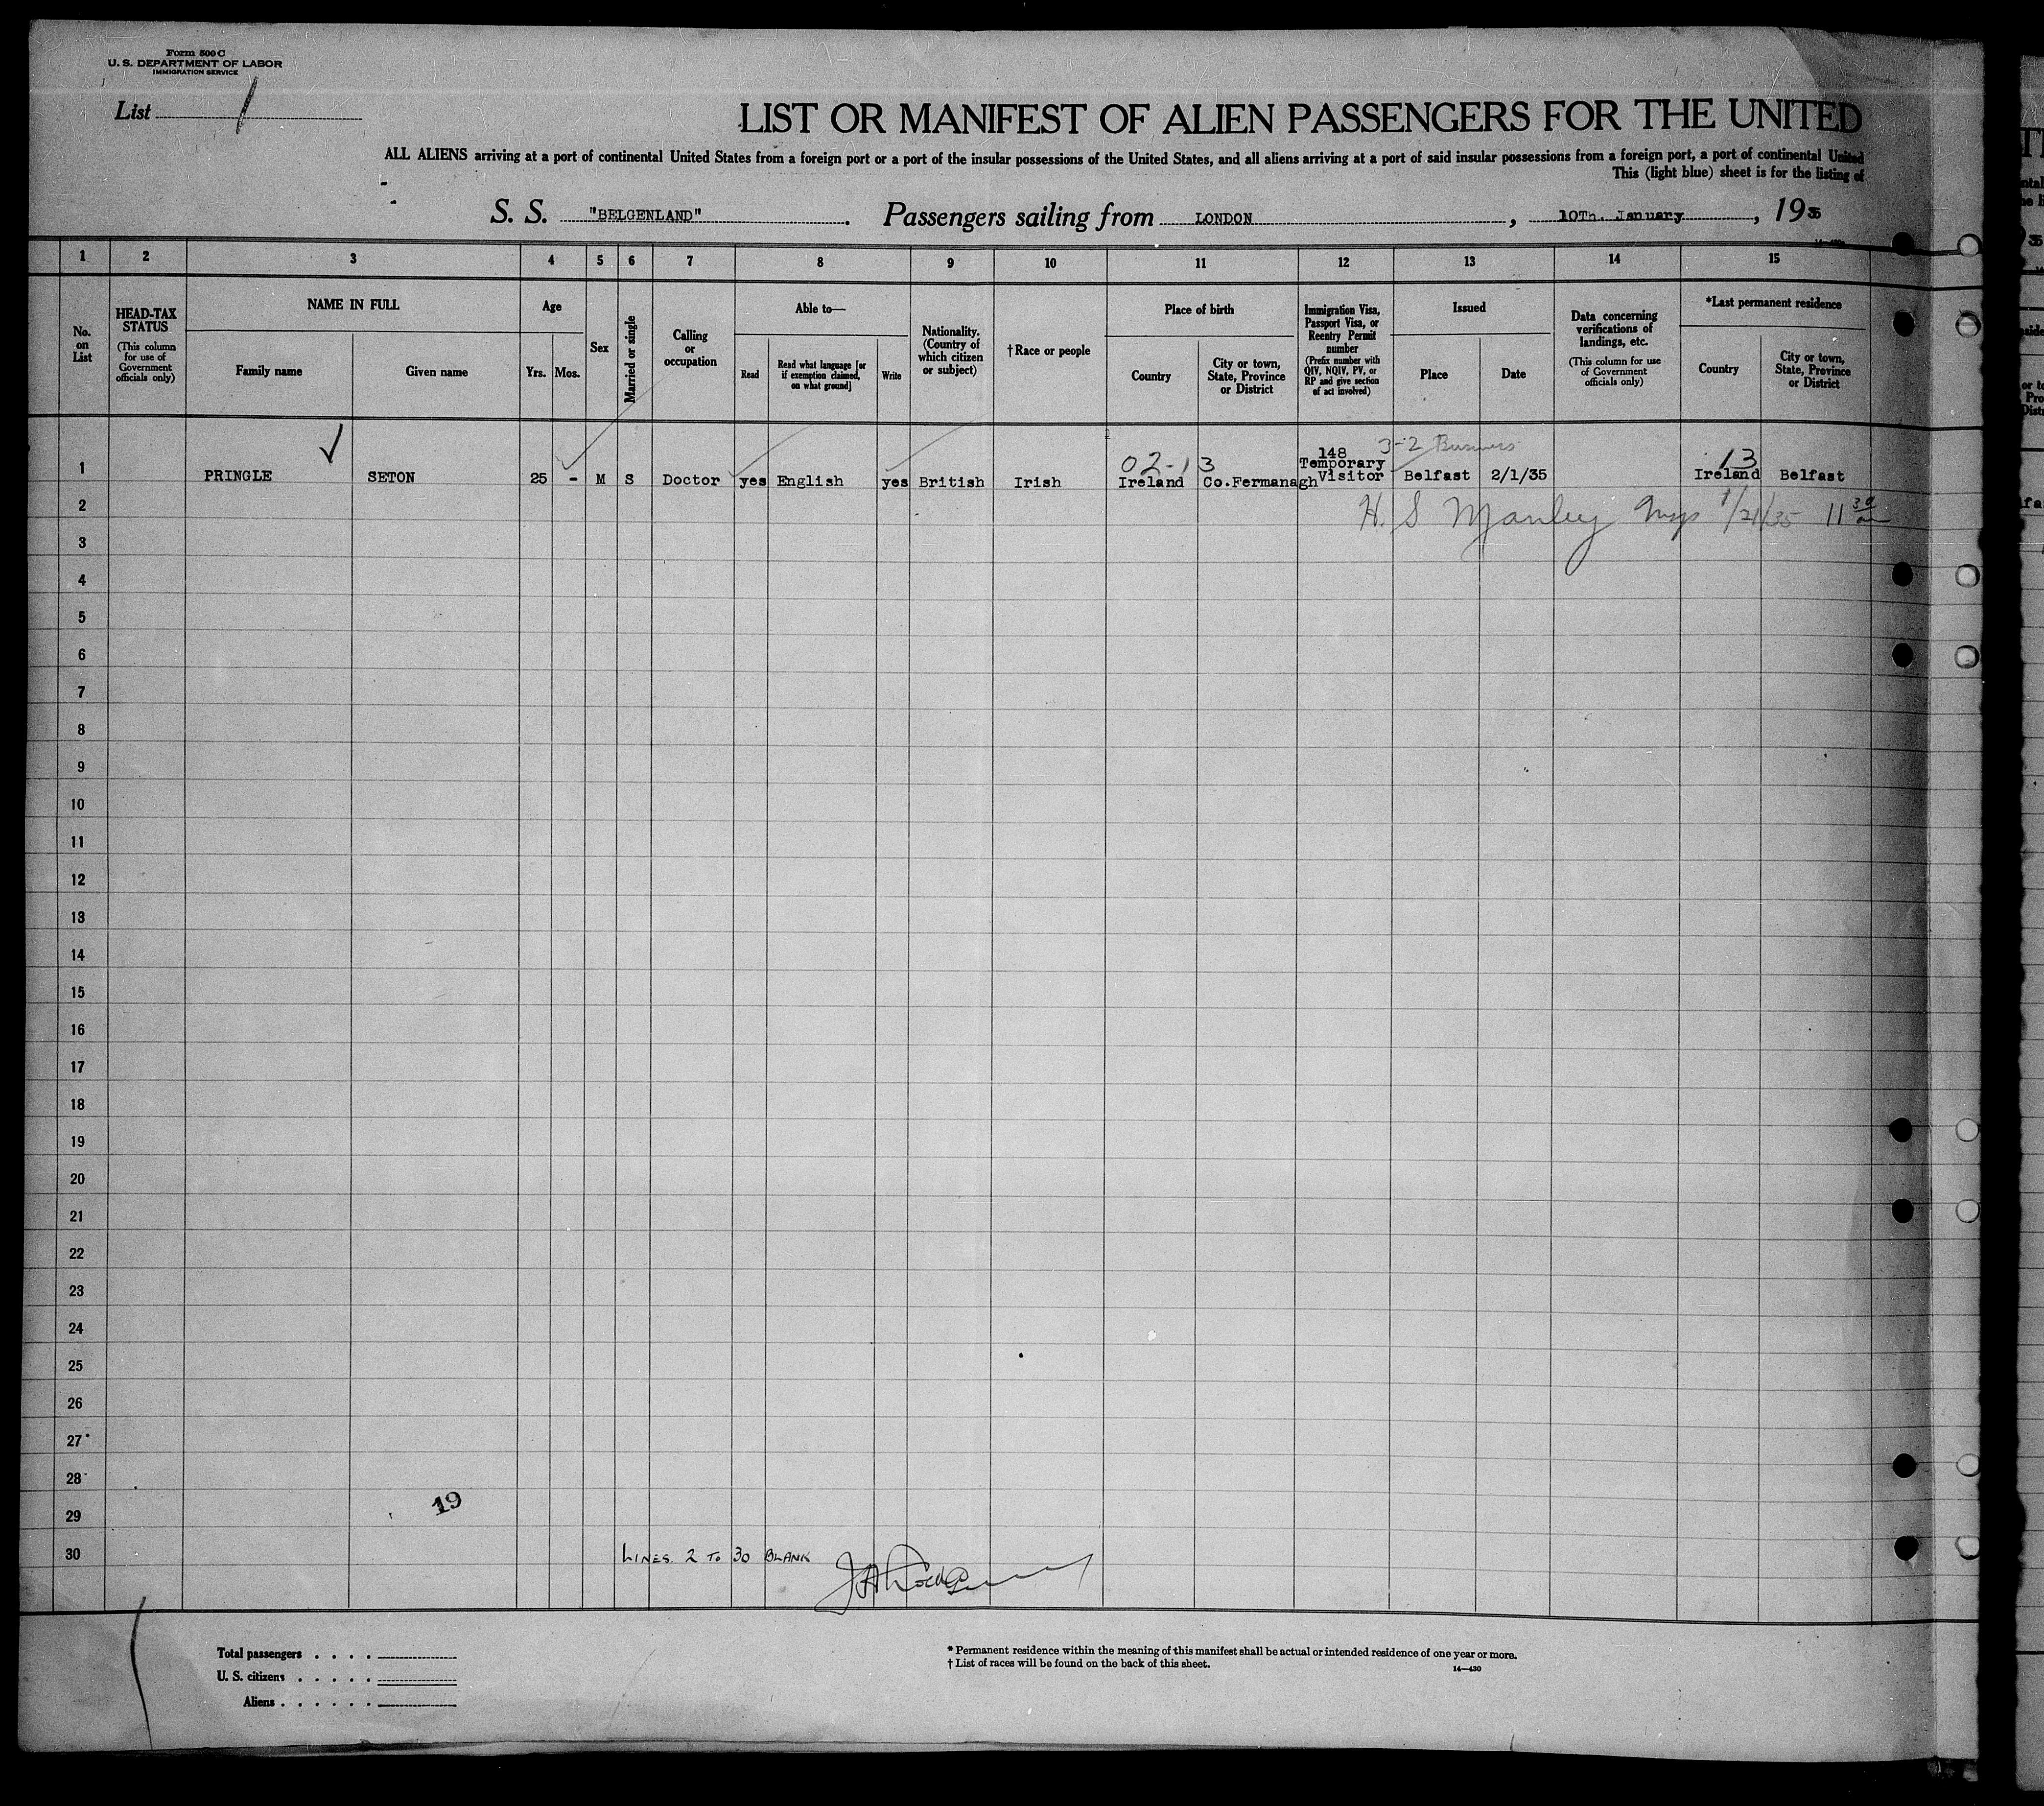 Form 500 C
U. S. DEPARTMENT OF LABOR
IMMIGRATION SERVICE
List 1
LIST OR MANIFEST OF ALIEN PASSENGERS FOR THE UNITED
ALL ALIENS arriving at a port of continental United States from a foreign port or a port of the insular possessions of the United States, and all aliens arriving at a port of said insular possessions from a foreign port, a port of continental United
This (light blue) sheet is for the listing of
S. S. "BELGENLAND". Passengers sailing from LONDON, 10Th. January, 1935
1 2 3 4 5 6 7 8 9 10 11 12 13 14 15
No. on List
HEAD-TAX STATUS
(This column for use of Government officials only)
NAME IN FULL
Family name
Given name
Age
Yrs. Mos.
Sex
Married or single
Calling or occupation
Able to—
Read
Read what language [or if exemption claimed, on what ground]
Write
Nationality. (Country of which citizen or subject)
†Race or people
Place of birth
Country
City or town, State, Province or District
Immigration Visa, Passport Visa, or Reentry Permit number
(Prefix number with QIV, NQIV, PV, or RP and give section of act involved)
Issued
Place
Date
Data concerning verifications of landings, etc.
(This column for use of Government officials only)
*Last permanent residence
Country
City or town, State, Province or District
02-13 148 3-2 Business 13
1 PRINGLE SETON 25 - M S Doctor yes English yes British Irish Ireland Co.Fermanagh Temporary Visitor Belfast 2/1/35 Ireland Belfast
2 H. S Manley 1/21/35 11 30 am
3
4
5
6
7
8
9
10
11
12
13
14
15
16
17
18
19
20
21
22
23
24
25
26
27
28
29
19
30 LINES. 2 TO 30 BLANK
Total passengers . . . .
U. S. citizens . . . . .
Aliens . . . . . .
* Permanent residence within the meaning of this manifest shall be actual or intended residence of one year or more.
† List of races will be found on the back of this sheet.
14—430